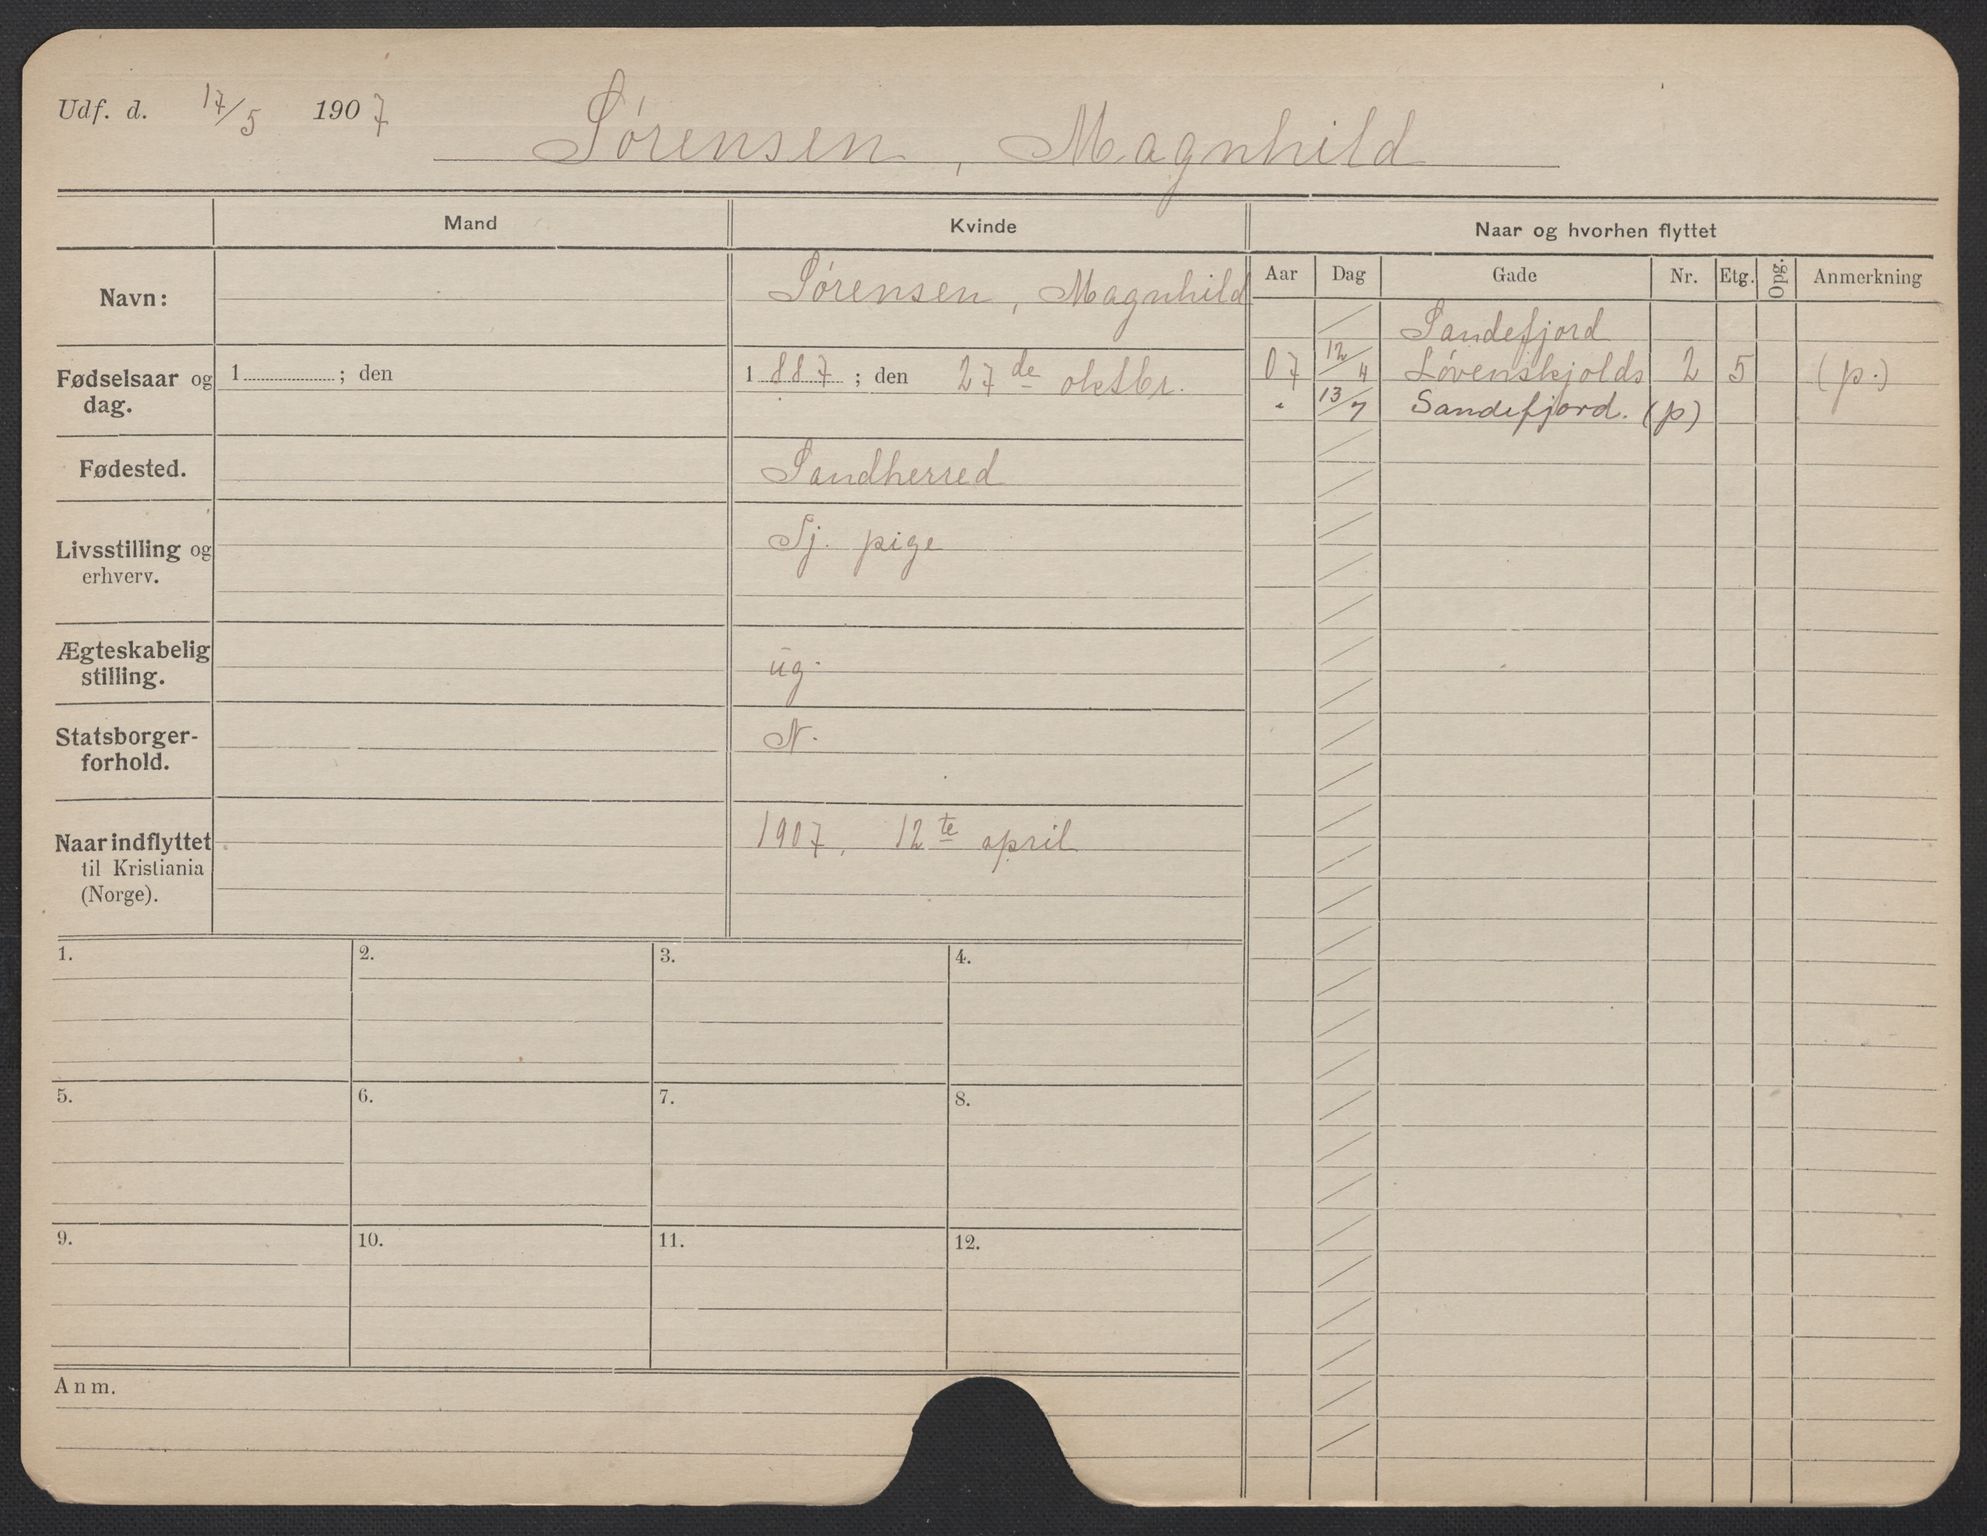 Udf. d. 17/5 1907
Sørensen, Magnhild
Mand
Kvinde
Naar og hvorhen flyttet
Aar Dag Gade Nr. Etg. Opg. Anmerkning
Navn:
Sørensen, Magnhild
Sandefjord
Fødselsaar og dag.
1 ; den
1887 ; den 27de oktbr.
07 12/4 Løvenskjolds 2 5 (p.)
" 13/7 Sandefjord. (p)
Fødested.
Sandherred
Livsstilling og
erhverv.
Sj. pige
Ægteskabelig
stilling.
ug.
Statsborger-
forhold.
N.
Naar indflyttet
til Kristiania
(Norge).
1907, 12te april
1. 2. 3. 4.
5. 6. 7. 8.
9. 10. 11. 12.
Anm.